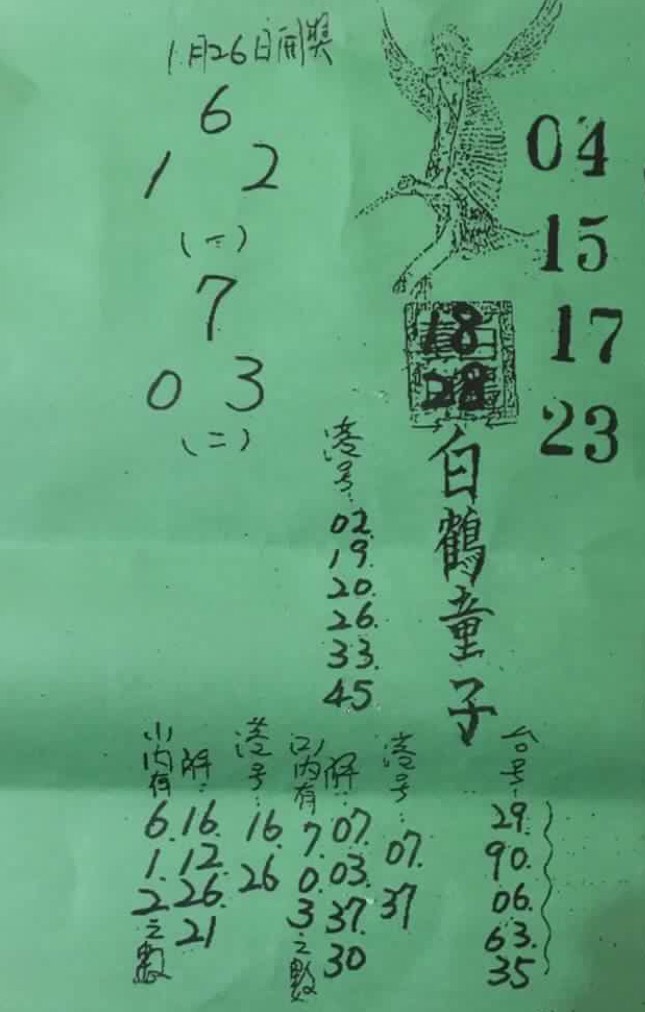 1月26日開獎
6
1 2
(一)
7
0 3
(二)
04
15
17
23
18
28
白鶴童子
港号:
02.
19.
20.
26.
33.
45
台号:
29.
90.
06.
63.
35
港号:
07.
37
解:
07.
03.
37.
30
(2)内有
7.
0.
3
之數
港号:
16.
26
解:
16.
12.
26.
21
(1)内有
6.
1.
2
之數